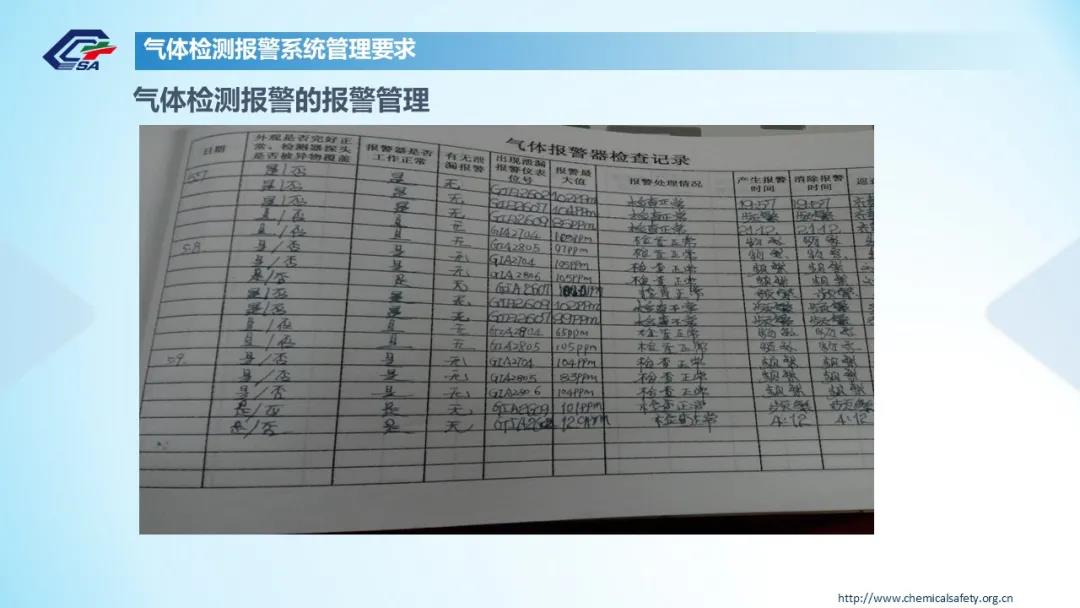 CCSA
气体检测报警系统管理要求
气体检测报警的报警管理
气体报警器检查记录
日期 外观是否完好正常、检测器探头是否被异物覆盖 报警器是否工作正常 有无泄漏报警 出现泄漏报警仪表位号 报警最大值 报警处理情况 产生报警时间 消除报警时间
5.7 是/否 是 无 102ppm 检查正常 19:57 19:57
是/否 是 无 检查正常 频繁 频繁
是/否 是 无 检查正常 21:12 21:12
是/否 是 无 GIA2704 检查正常 频繁 频繁
5.8 是/否 是 无 GIA2805 97ppm 检查正常 频繁 频繁
是/否 是 无 GIA2704 105ppm 检查正常 频繁 频繁
是/否 是 无 GIA2806 105ppm 检查正常 频繁 频繁
是/否 是 无 检查正常 频繁 频繁
是/否 是 无 102ppm 检查正常 频繁 频繁
是/否 是 无 99ppm 检查正常 频繁 频繁
是/否 是 无 GIA2804 65ppm 检查正常 频繁 频繁
是/否 是 无 GIA2805 105ppm 检查正常 频繁 频繁
5.9 是/否 是 无 GIA2704 104ppm 检查正常 频繁 频繁
是/否 是 无 GIA2805 83ppm 检查正常 频繁 频繁
是/否 是 无 GIA2806 104ppm 检查正常 频繁 频繁
是/否 是 无 101ppm 检查正常 频繁 频繁
是/否 是 无 检查正常 4:12 4:12
http://www.chemicalsafety.org.cn